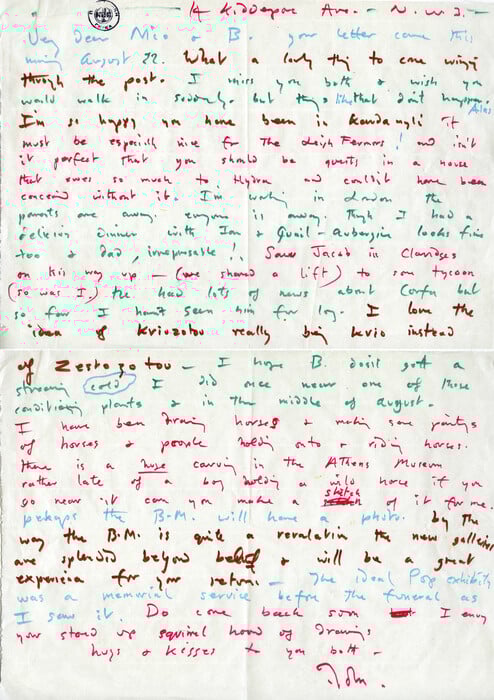 14 Kidderpore Ave. - N.W.3. -
Very Dear Nico & B. your letter came this
morning August 22. What a lovely thing to come winging
through the post. I miss you both & wish you
would walk in suddenly. but things like that don't happen. Alas
I'm so happy you have been in Kardamyli it
must be especially nice for The Leigh Fermors! and isn't
it perfect that you should be guests in a house
that owes so much to Hydra and couldn't have been
conceived without it. I'm working in London the
parents are away. everyone is away. Though I had a
delicious dinner with Ian & Quail - Aubergine looks fine
too & Dad, irrepressible! Saw Jacob in Claridges
on his way up - (we shared a lift) to some tycoon
(so was I.) He had lots of news about Corfu but
so far I haven't seen him for long. I love the
idea of Kriozotou really being krio instead
of Zestozotou - I hope B. didn't get a
streaming cold. I did once near one of those
conditioning plants & in the middle of August.
I have been drawing horses & making some paintings
of horses & people holding onto & riding horses.
There is a huge carving in the Athens Museum
rather late of a boy holding a wild horse if you
go near it can you make a sketch of it for me.
perhaps the B.M. will have a photo. by The
way the B.M. is quite a revelation the new galleries
are splendid beyond belief & will be a great
experience for your return. - The ideal Pop exhibition
was a memorial service before the funeral as
I saw it. Do come back soon I envy
your stored up squirrel hoard of drawings
hugs & kisses to you both -
John.